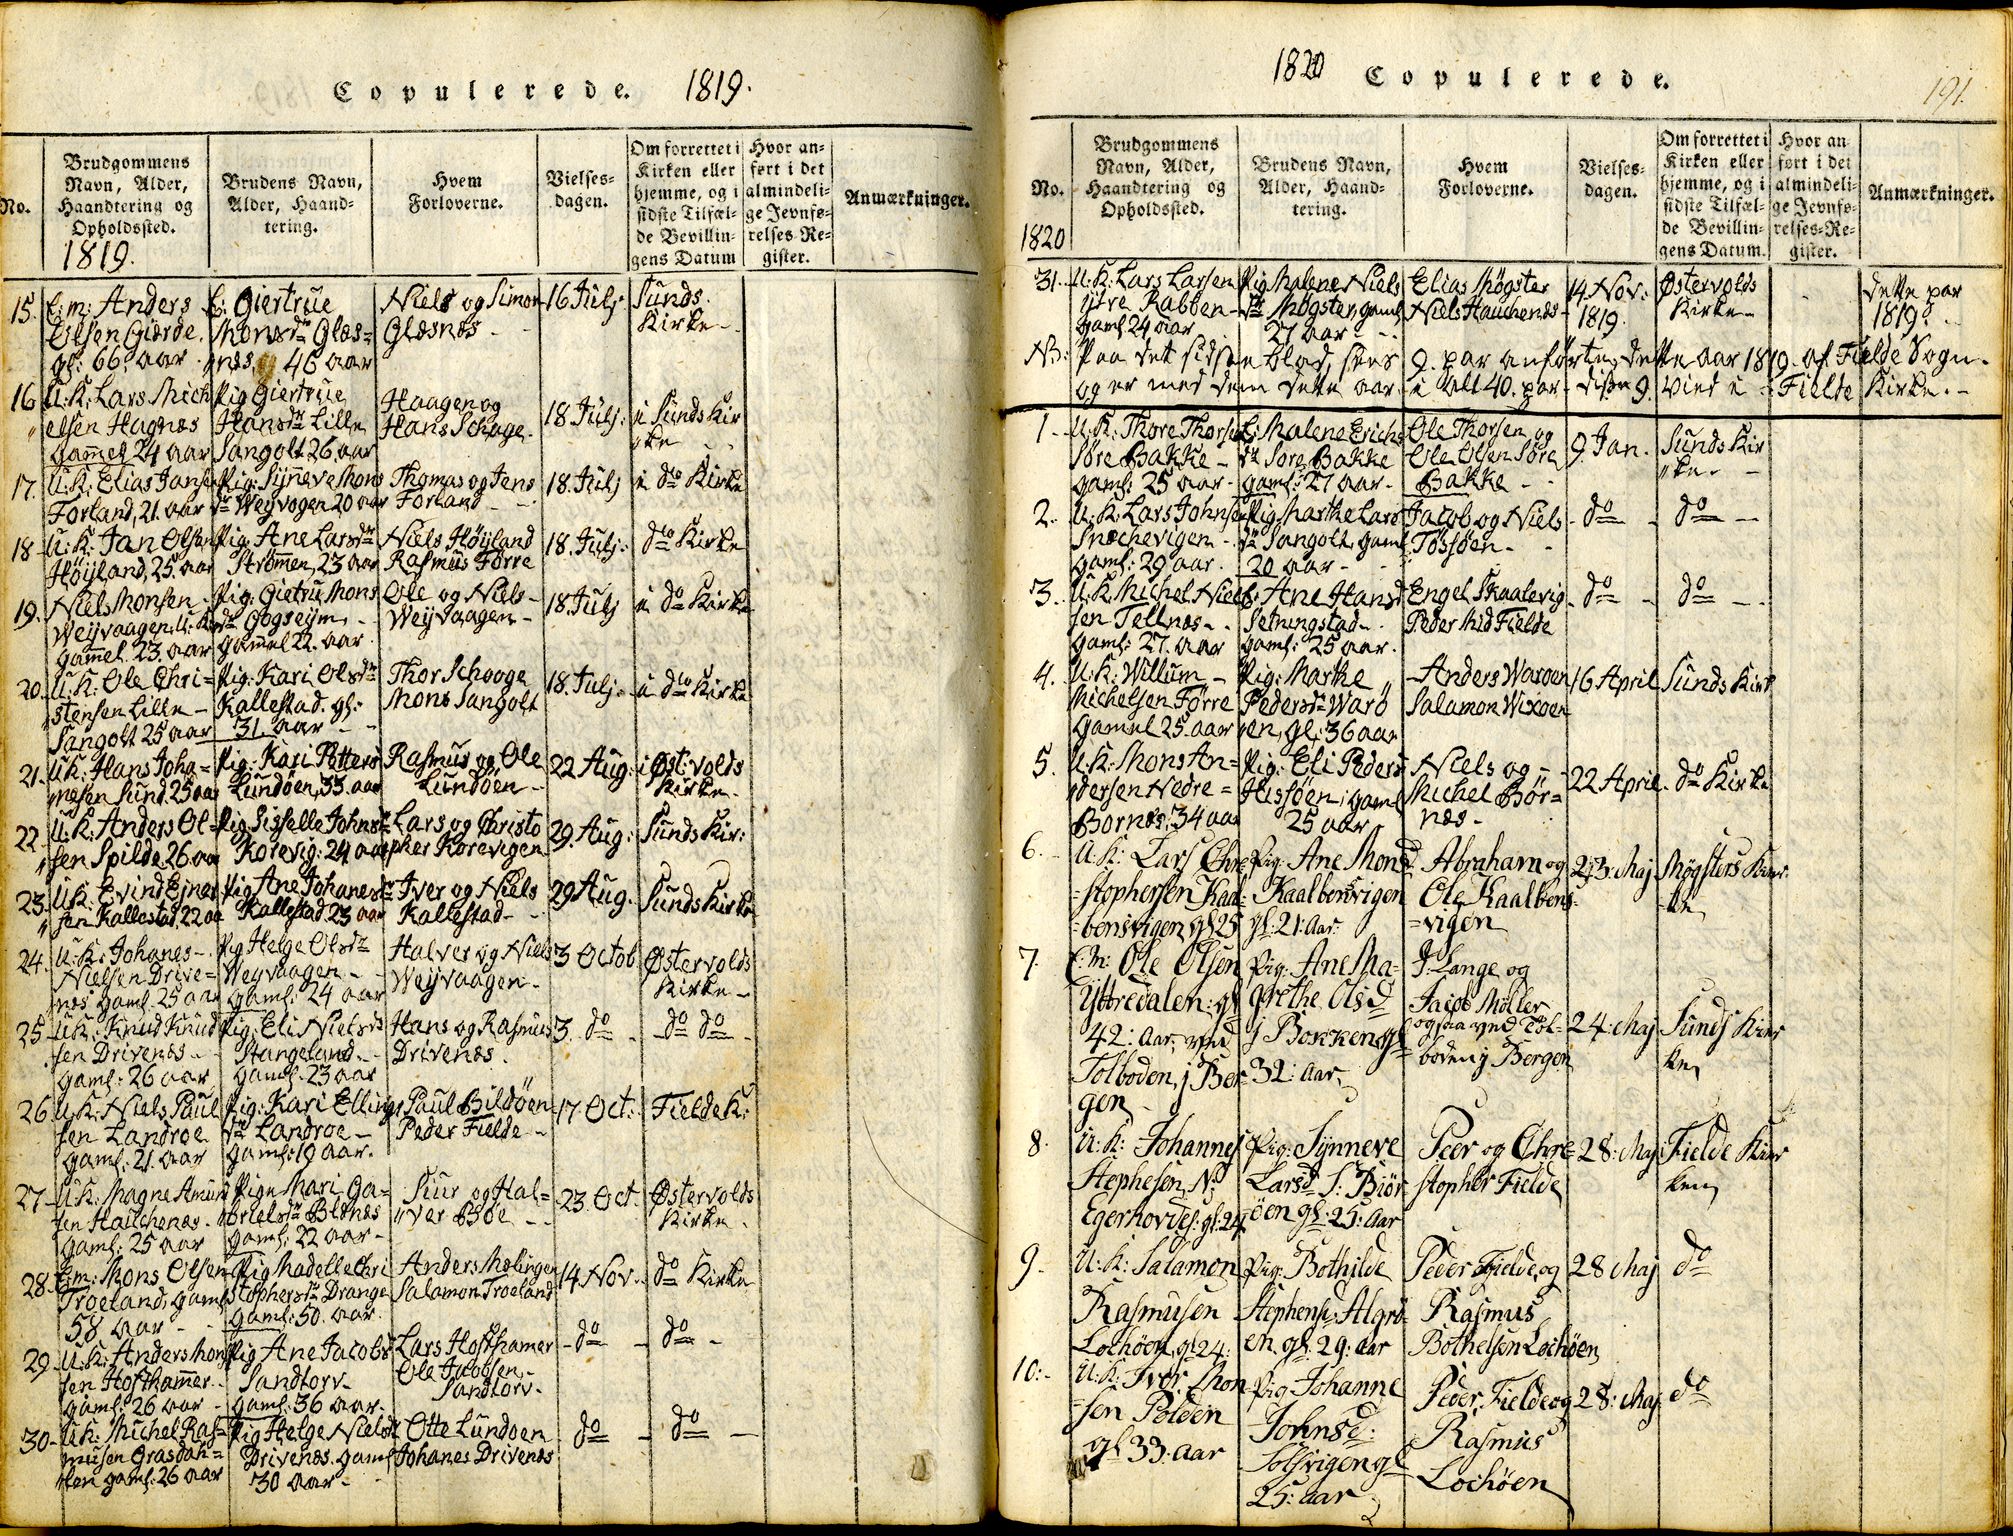 Copulerede. 1819.
No.
Brudgommens
Navn, Alder,
Haandtering og
Opholdssted.
1819.
Brudens Navn,
Alder, Haand-
tering.
Hvem
Forloverne.
Vielses-
dagen.
Om forrettet i
Kirken eller
hjemme, og i
sidste Tilfæl-
de Bevillin-
gens Datum
Hvor an-
ført i det
almindeli-
ge Jevnfø-
relses Re-
gister.
Anmærkninger.
15. E: m: Anders
Olsen Giærde.
gl: 66. aar
E: Giertrue
Monsdr Glæs=
næs, 46 aar
Niels og Simon
Glæsnæs
16 Julj
Sunds
Kirke
16 U: K: Lars Mich
elsen Hagnæs
gammel 24 aar
Pig Giertrue
Hansdr Lille
Sangolt 26 aar
Haagen og
Hans Schage
18 Julj:
i Sunds Kir
ke
17. U: K: Elias Jansen
Forland, 21. aar
Pig: Synneve Mons
dr Weyvogen 20 aar
Thomas og Jens
Forland
18. Julj
i do Kirke
18 U: K: Jan Olsen
Höyland, 25. aar
Pig: Ane Larsdr
Strömmen, 23 aar
Niels Höyland
Rasmus Förre
18. Julj:
do Kirke
19. Niels Monsen
Weyvaagen, U: K:
gammel. 23. aar
Pig: Gietru Mons
dr Gogseym
gammel 22. aar
Ole og Niels
Weyvaagen
18 Julj
i do Kirke
20. U: K: Ole Chri=
stensen Lille
Sangolt 25 aar
Pig: Kari Olsdr
Kallestad. gl:
31. aar
Thor Schooge
Mons Sangolt
18. Julj:
i do Kirke
21. U: K: Hans Joha=
nesen Sund. 25 aar
Pig: Kari Petters
Lundöen, 33. aar
Rasmus og Ole
Lundöen
22 Aug:
i Öst: volds
Kirke
22. U: K: Anders Ol=
sen Spilde 26. aar
Pig Sisselle Johnsdr
Korevig: 24 aar
Lars og Christo
pher Korevigen
29. Aug:
Sunds Kir:
23. U: K: Evind Ejner
sen Kallestad, 22 aar
Pig Ane Johanesdr
Kallestad 23 aar
Iver og Niels
Kallestad
29 Aug.
Sunds Kirke
24. U: K: Johanes
Nielsen Drive=
næs gaml. 25 aar
Pig Helge Olsdr
Weyvaagen
gaml: 24 aar
Halver og Niels
Weyvaagen
3 Octob
Östervolds
Kirke
25 U: K: Knud Knud
sen Drivenæs
gaml: 26 aar
Pig: Eli Nielsdr
Stangeland
gaml: 23 aar
Hans og Rasmus
Drivenæs.
3. do
do do
26. U: K: Niels Paul
sen Landroe
gaml: 21. aar
Pig: Kari Ellings
dr Landroe
gaml: 19 aar.
Paul Bildöen
Peder Fielde
17 Oct:
Fielde K:
27 U: K: Magne Amund
sen Hauchenæs
gaml: 25 aar
Pige Mari Ga=
brielsdr Blenæs
gaml: 22 aar
Siur og Hal=
ver Böe
23. Oct
Östervolds
Kirke
28. E: m: Mons Olsen
Troeland, gaml
58 aar
Pig Madelle Chri
stophersdr Drange
gaml: 50. aar
Anders Mölingen
Salamon Troeland
14 Nov.
do Kirke
29. U: K: Anders Mons
sen Hofthamer
gaml: 26 aar
Pig Ane Jacobs
Sandtorv
gaml: 36 aar
Lars Hofthamer
Ole Jacobsen
Sandtorv
do
do
30 U: K: Michel Ras=
musen Grasdah=
len gaml: 26 aar
Pig Helge Nielsdr
Drivenæs. gaml
30 aar
Otte Lundöen
Johanes Drivenæs
do
do
1820 Copulerede. 191.
No.
1820
Brudgommens
Navn, Alder,
Haandtering og
Opholdssted.
Brudens Navn,
Alder, Haand-
tering.
Hvem
Forloverne.
Vielses-
dagen.
Om forrettet i
Kirken eller
hjemme, og i
sidste Tilfæl-
de Bevillin-
gens Datum.
Hvor an-
ført i det
almindeli-
ge Jevnfø-
relses-Re-
gister.
Anmærkninger.
31. U: K: Lars Larsen
ytre Rabben
gaml 24 aar
Pig Malene Niels
dr Mögster, gaml
27 aar
Elias Mögster
Niels Hauchenæs
14. Nov:
1819
Östervolds
Kirke
dette par
1819.
NB: Paa det sidste blad, sees 9. par anförte, dette aar 1819. af Fielde Sogn.
og er med dem dette aar i alt 40. par disse 9. Vied i Fielde Kirke.
1 U: K: Thore Thorsen
Söre Bakke
gaml: 25 aar
E: Malene Erichs
dr Söre Bakke
gaml: 27 aar
Ole Thorsen og
Ole Olsen Söre
Bakke
9 Jan.
Sunds Kir
ke
2. U: K: Lars Johnsen
Snæchevigen
gaml: 29 aar
Pig Marthe Lars
dr Sangolt, gaml
20 aar
Jacob og Niels
Tössöen
do
do
3. U: K: Michel Niel
sen Tellnæs
gaml: 27. aar
E: Ane Hansd
Selningstad
gaml: 25 aar.
Engel Skaalevig
Peder Mid Fielde
do
do
4. U: K: Willum
Michelsen Förre
gamel 25. aar
Pig: Marthe
Pedersdr Warö
en, gl: 36 aar
Anders Waröen
Salamon Wixöen
16 April
Sunds Kirk
5. U: K: Mons An=
dersen Nedre=
Bornæs, 34 aar
Pig: Eli Peders
Hissöen, gaml
25 aar
Niels og
Michel Bör=
næs
22 April
do Kirke
6. U: K: Lars Chre
=stophersen Kaal=
=bensvigen, gl 25
Pig: Ane Monsd
Kaalbensvigen
gl: 21: Aar:
Abraham og
Ole Kaalbens
=vigen
23. Maj
Mögsters Kier
=ke
7. E: m: Ole Olsen
Yttredalen: gl
42: Aar, ved
Tolboden, j Ber
gen
Pig: Ane Ma=
grethe Olsd
j Borken gl
32: Aar
J: Lange og
Jacob Möller
ogsaa ved Tol=
boden j Bergen
24: Maj
Sunds Kier
ken
8. U: K: Johannes
Stephesen, N:
Egerhovde: gl: 24
Pig: Synneve
Larsd S: Biör
öen gl: 25: Aar
Peer og Chre=
stopher Fielde
28: Maj
Fielde Kier
ken
9. U: K: Salamon
Rasmusen
Lochöen, gl 24:
Pig: Bothilde
Stephensd Algrö
en, gl: 29: Aar
Peder Fielde, og
Rasmus
Bothelsen Lochöen
28 Maj
do
10: U: K: Ivor Mon
=sen Polden
gl 33: Aar
Pig Johanne
Johnsd:
Solsvigen gl
25: aar
Peder Fielde og
Rasmus
Lochöen
28: Maj
do